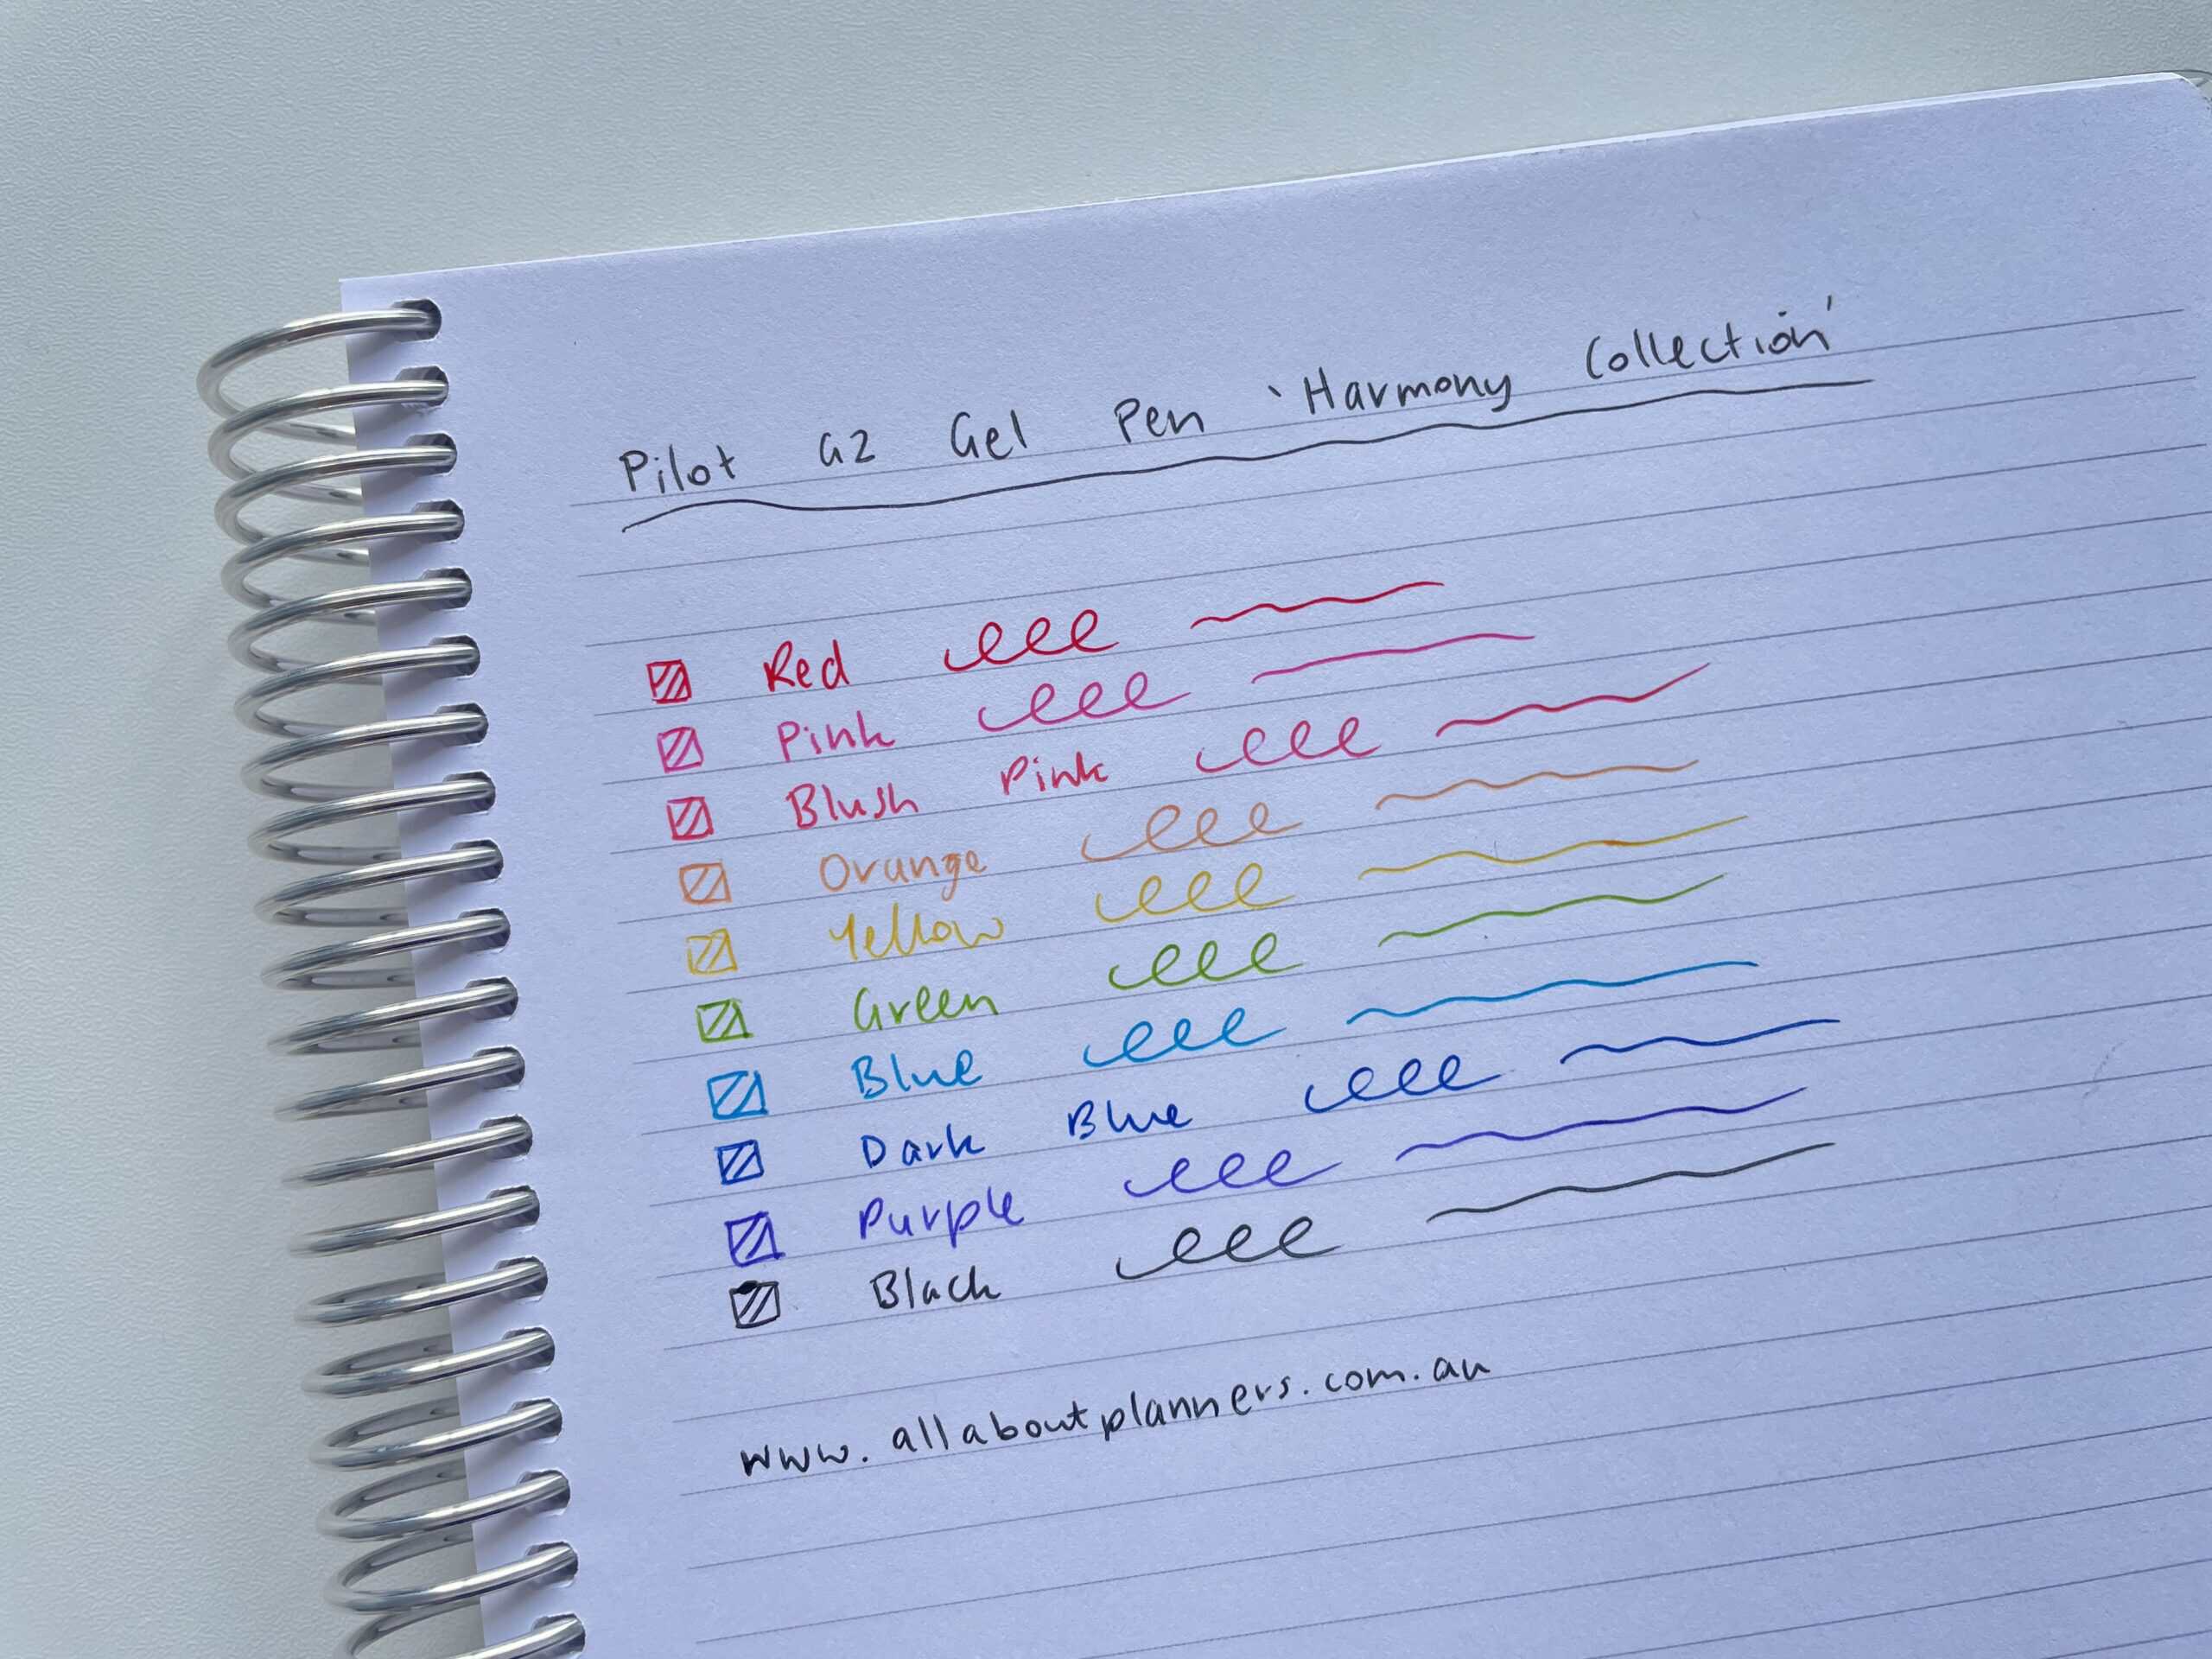 Pilot G2 Gel Pen 'Harmony Collection'
Red
Pink
Blush Pink
Orange
Yellow
Green
Blue
Dark Blue
Purple
Black
www.allaboutplanners.com.au